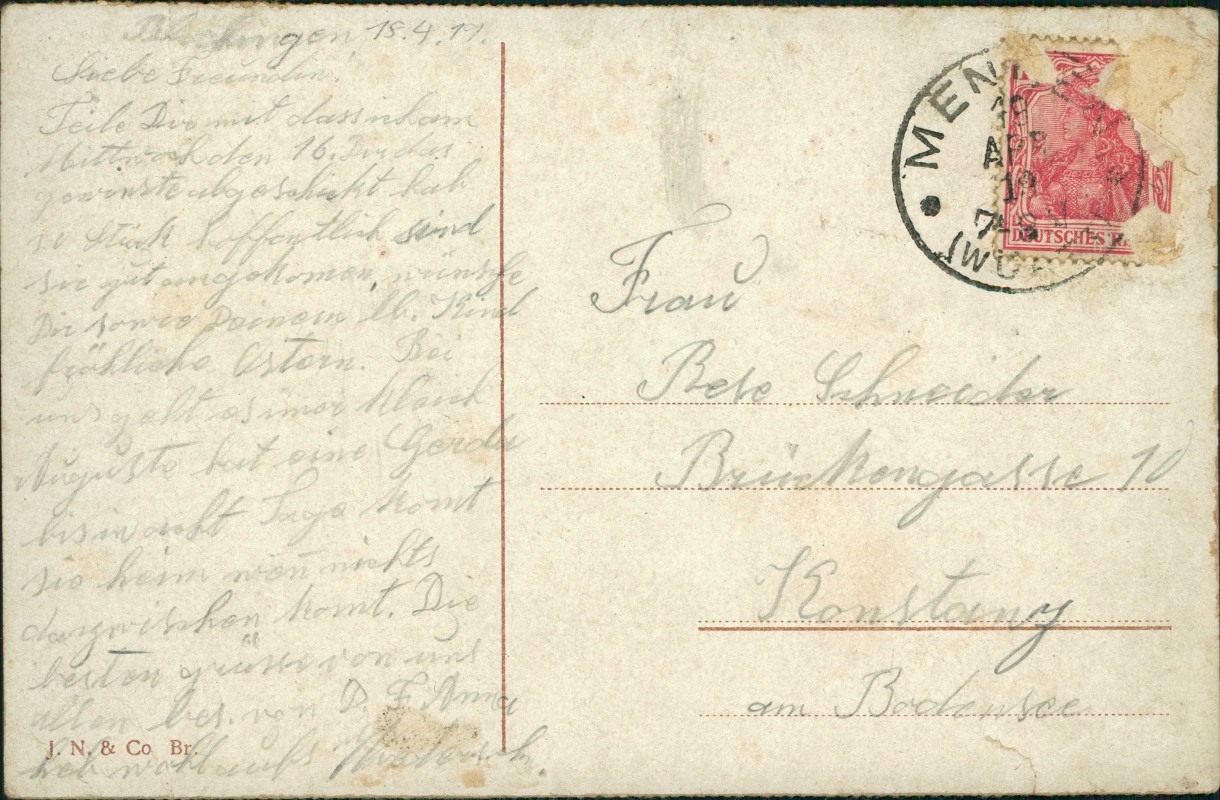 18.4.19.
Liebe Freundin.
Teile Dir mit dass ich am
Mittwoch den 16. Dir das
gewünste abgeschikt hab
Stück hoffentlich sind
sie gut angekomen, wünsche
Dir sowie Deinem lb. Kind
fröhliche Ostern. Bei
uns geht es imer
Auguste hat eine Gerda
bis in acht Tage komt
sie heim wen̄ nichts
dazwischen komt. Die
besten grüsse von uns
allen bes. von D. F. Anna
leb wohl aufs
J. N. & Co Br.
MEN
APR
19
7-8
(WÜR
DEUTSCHES RE
Frau
Schneider
Brückengasse 10
Konstanz
am Bodensee